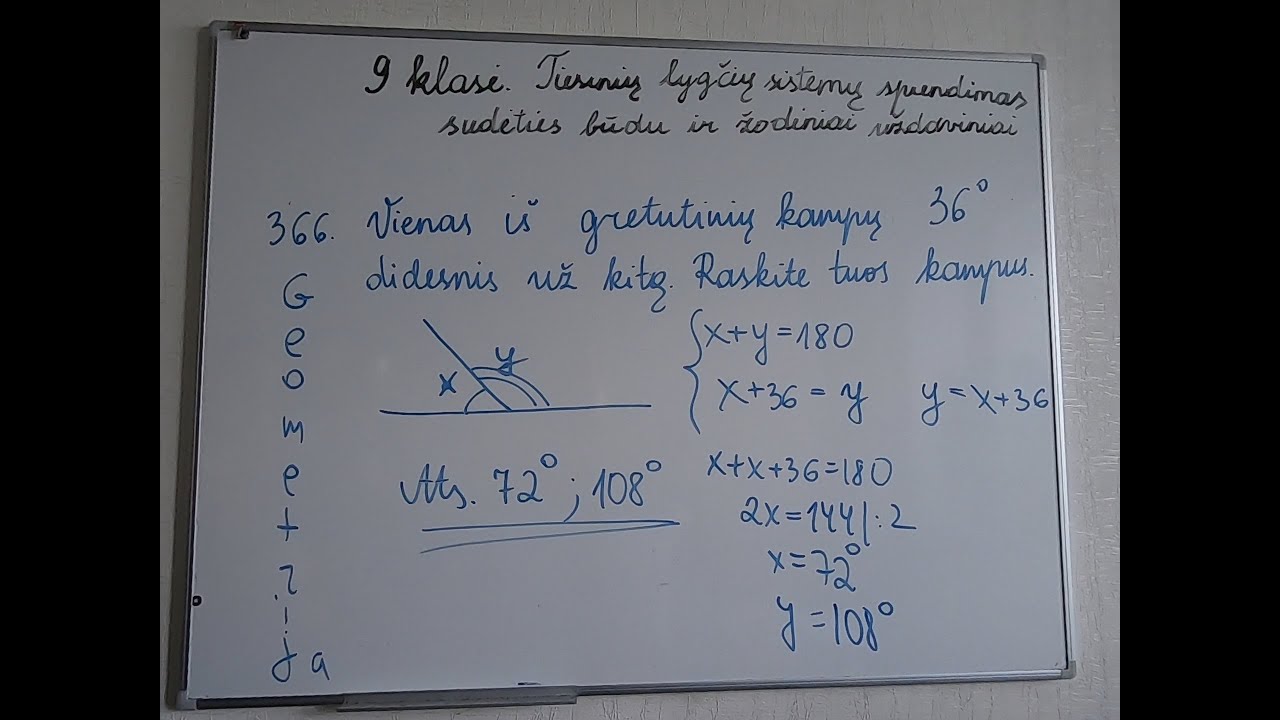 9 klasė. Tiesinių lygčių sistemų sprendimas
sudėties būdu ir žodiniai uždaviniai
366. Vienas iš gretutinių kampų 36°
didesnis už kitą. Raskite tuos kampus.
G
e
o
m
e
t
r
i
j a
x
y
x+y=180
x+36=y y=x+36
x+x+36=180
2x=144|:2
x=72°
y=108°
Ats. 72°; 108°